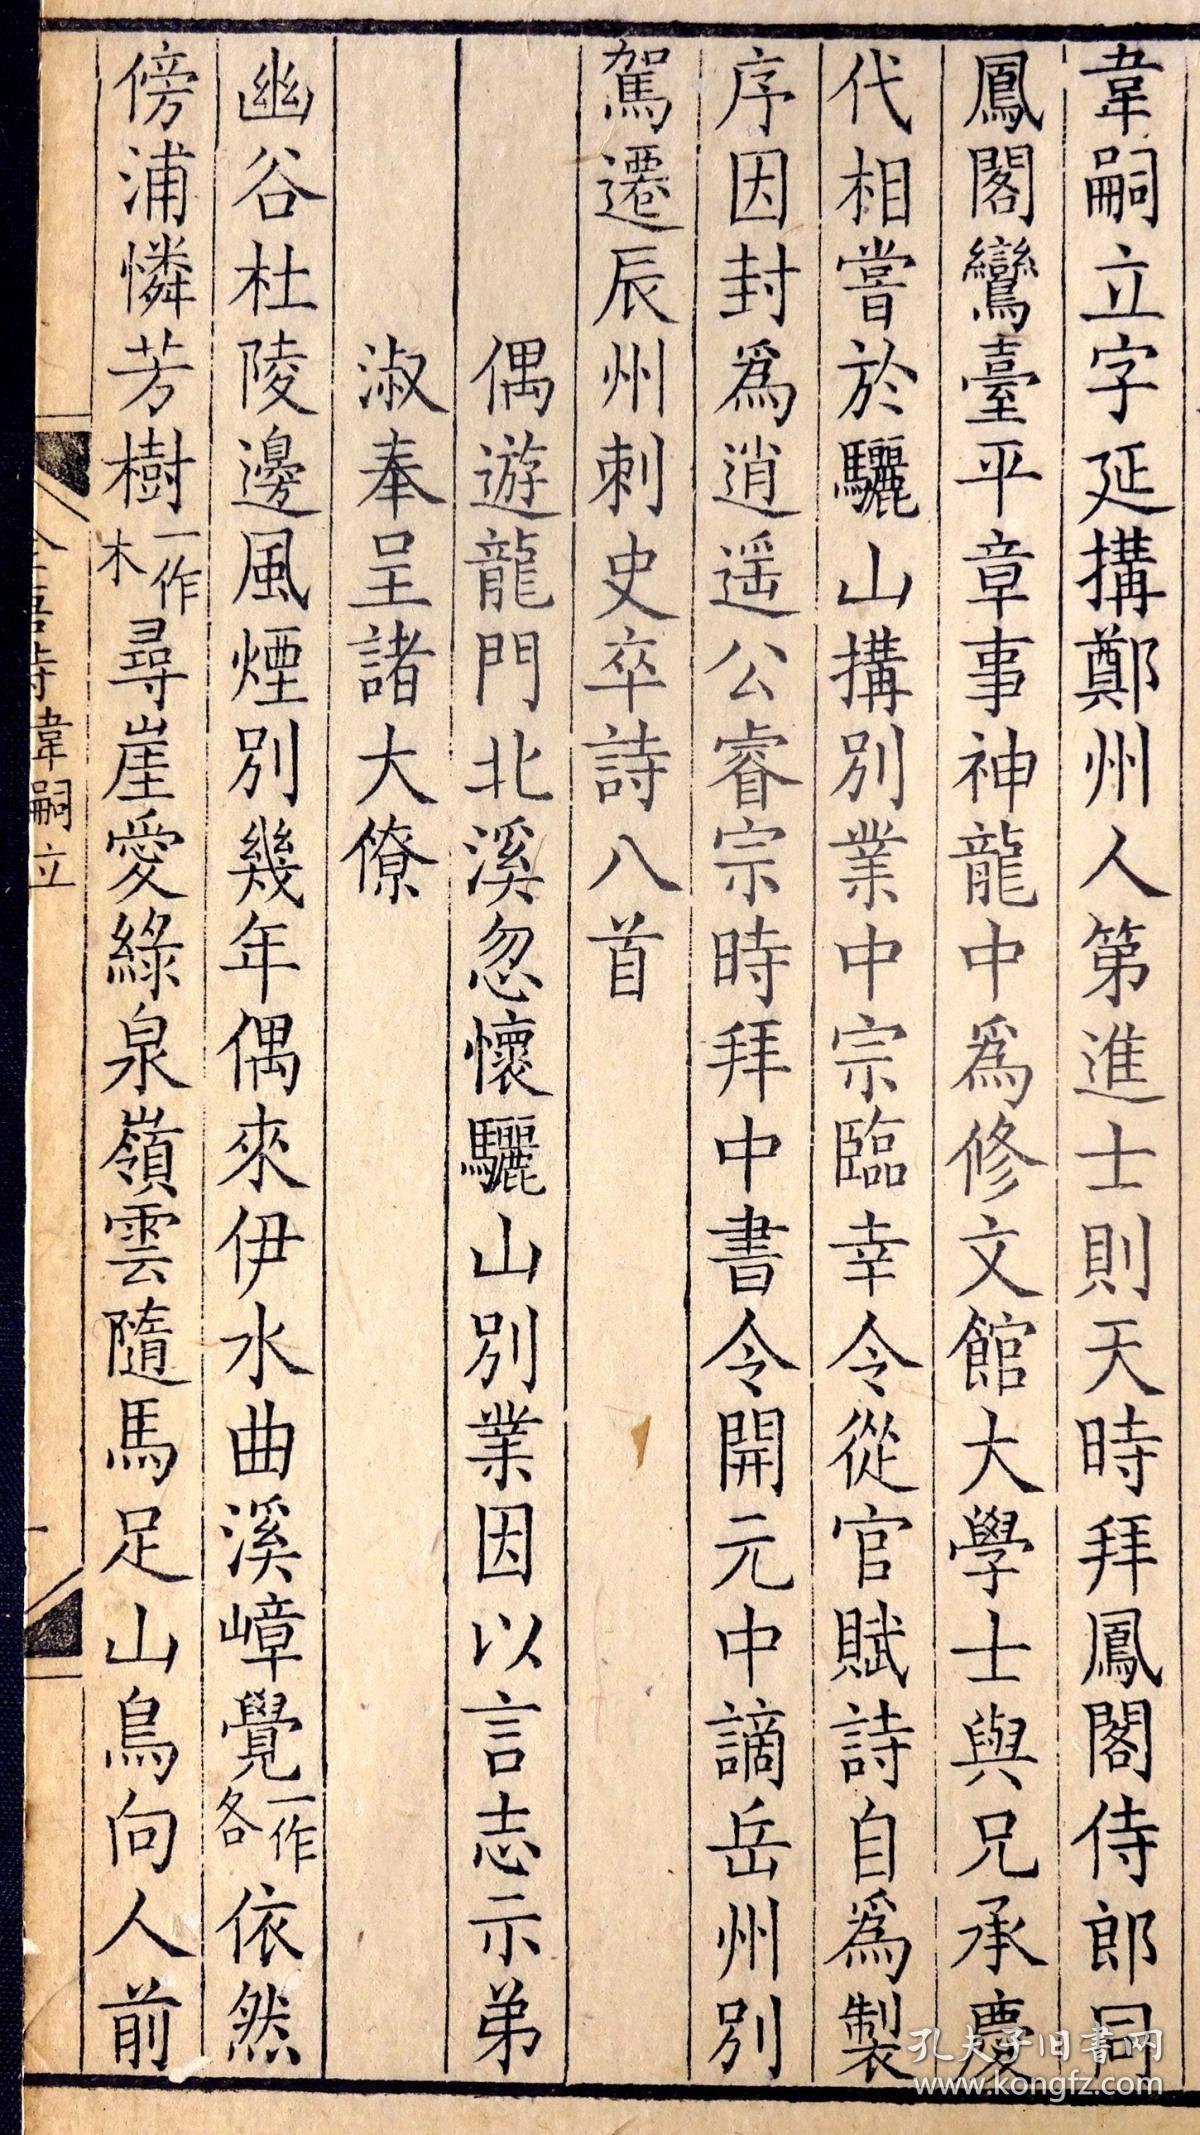 韋嗣立字延搆鄭州人第進士則天時拜鳳閣侍郎同
鳳閣鸞臺平章事神龍中爲修文館大學士與兄承慶
代相嘗於驪山搆別業中宗臨幸令從官賦詩自爲製
序因封爲逍遥公睿宗時拜中書令開元中謫岳州別
駕遷辰州刺史卒詩八首
偶遊龍門北溪忽懷驪山別業因以言志示弟
淑奉呈諸大僚
幽谷杜陵邊風煙別幾年偶來伊水曲溪嶂覺一作各依然
傍浦憐芳樹一作木尋崖愛綠泉嶺雲隨馬足山鳥向人前
韋嗣立
一
孔夫子旧书网
www.kongfz.com